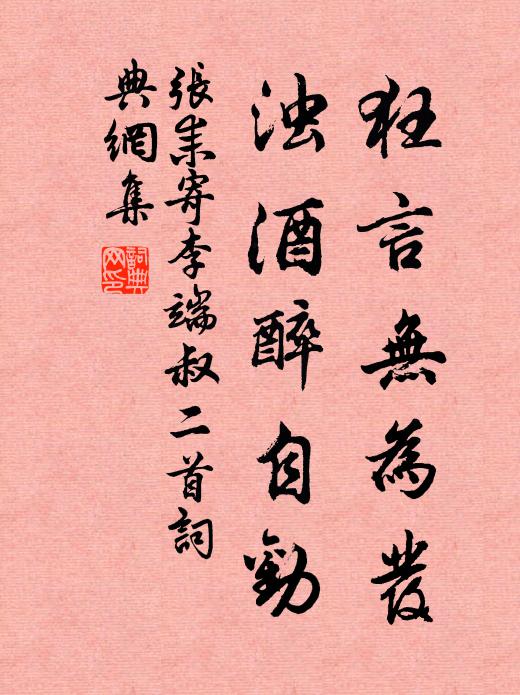 狂言無為發
浊酒醉自勸
張耒寄李端叔二首詞
典網集
詞典
网印